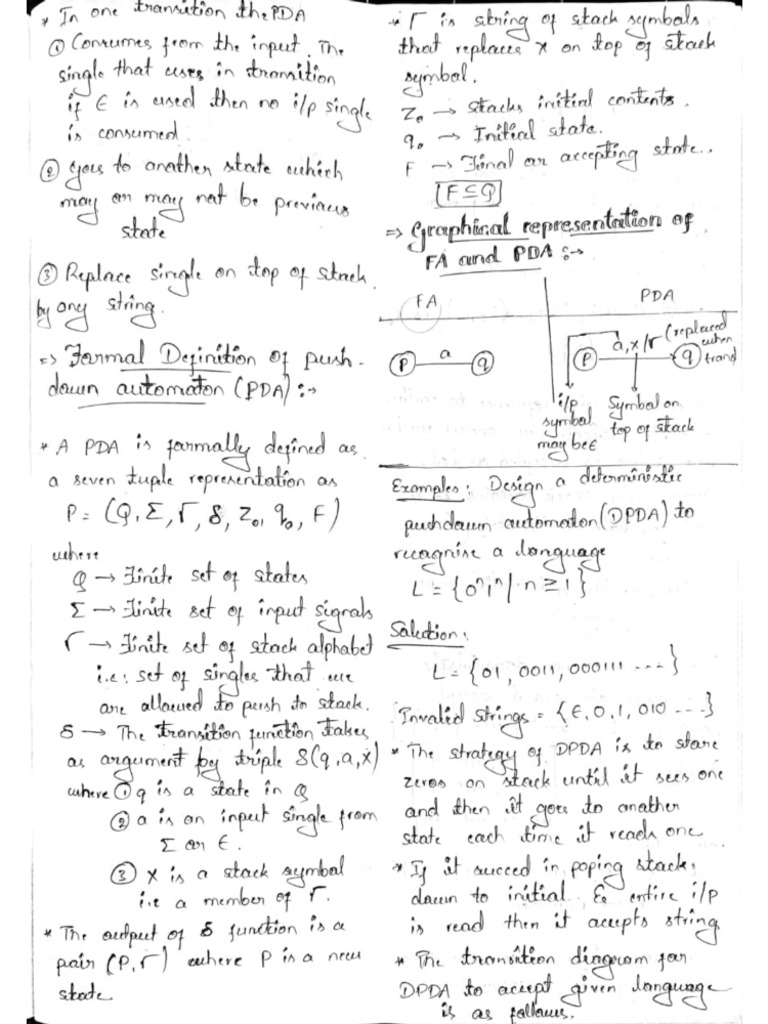 * In one transition the PDA
① Consumes from the input. The
single that uses in transition
if ε is used then no i/p single
is consumed.
② goes to another state which
may or may not be previous
state
③ Replace single on top of stack
by any string.
=> Formal Definition of push-
down automaton (PDA) :→
* A PDA is formally defined as
a seven tuple representation as
P = (Q, Σ, Γ, δ, Z₀, q₀, F)
where
Q → Finite set of states
Σ → Finite set of input signals
Γ → Finite set of stack alphabet
i.e: set of singles that we
are allowed to push to stack.
δ → The transition function takes
as argument by triple δ(q, a, x)
where ① q is a state in Q
② a is an input single from
Σ or ε.
③ X is a stack symbol
i.e a member of Γ.
* The output of δ function is a
pair (P, Γ) where P is a new
state
* Γ is string of stack symbols
that replaces X on top of stack
symbol.
Z₀ → Stacks initial contents.
q₀ → Initial state.
F → Final or accepting state..
F ⊆ Q
=> Graphical representation of
FA and PDA :→
FA
PDA
P a q
P a, x/Γ (replaced when trand q
i/p symbol may be ε
Symbol on top of stack
Examples: Design a deterministic
pushdown automaton (DPDA) to
recognise a language
L = {0ⁿ1ⁿ | n ≥ 1}
Solution:
L = {01, 0011, 000111 ----}
Invalid strings = {ε, 0, 1, 010 ----}
* The strategy of DPDA is to store
zeros on stack until it sees one
and then it goes to another
state each time it reads one
* If it succed in poping stack
down to initial & entire i/p
is read then it accepts string
* The transition diagram for
DPDA to accept given language
is as follows.